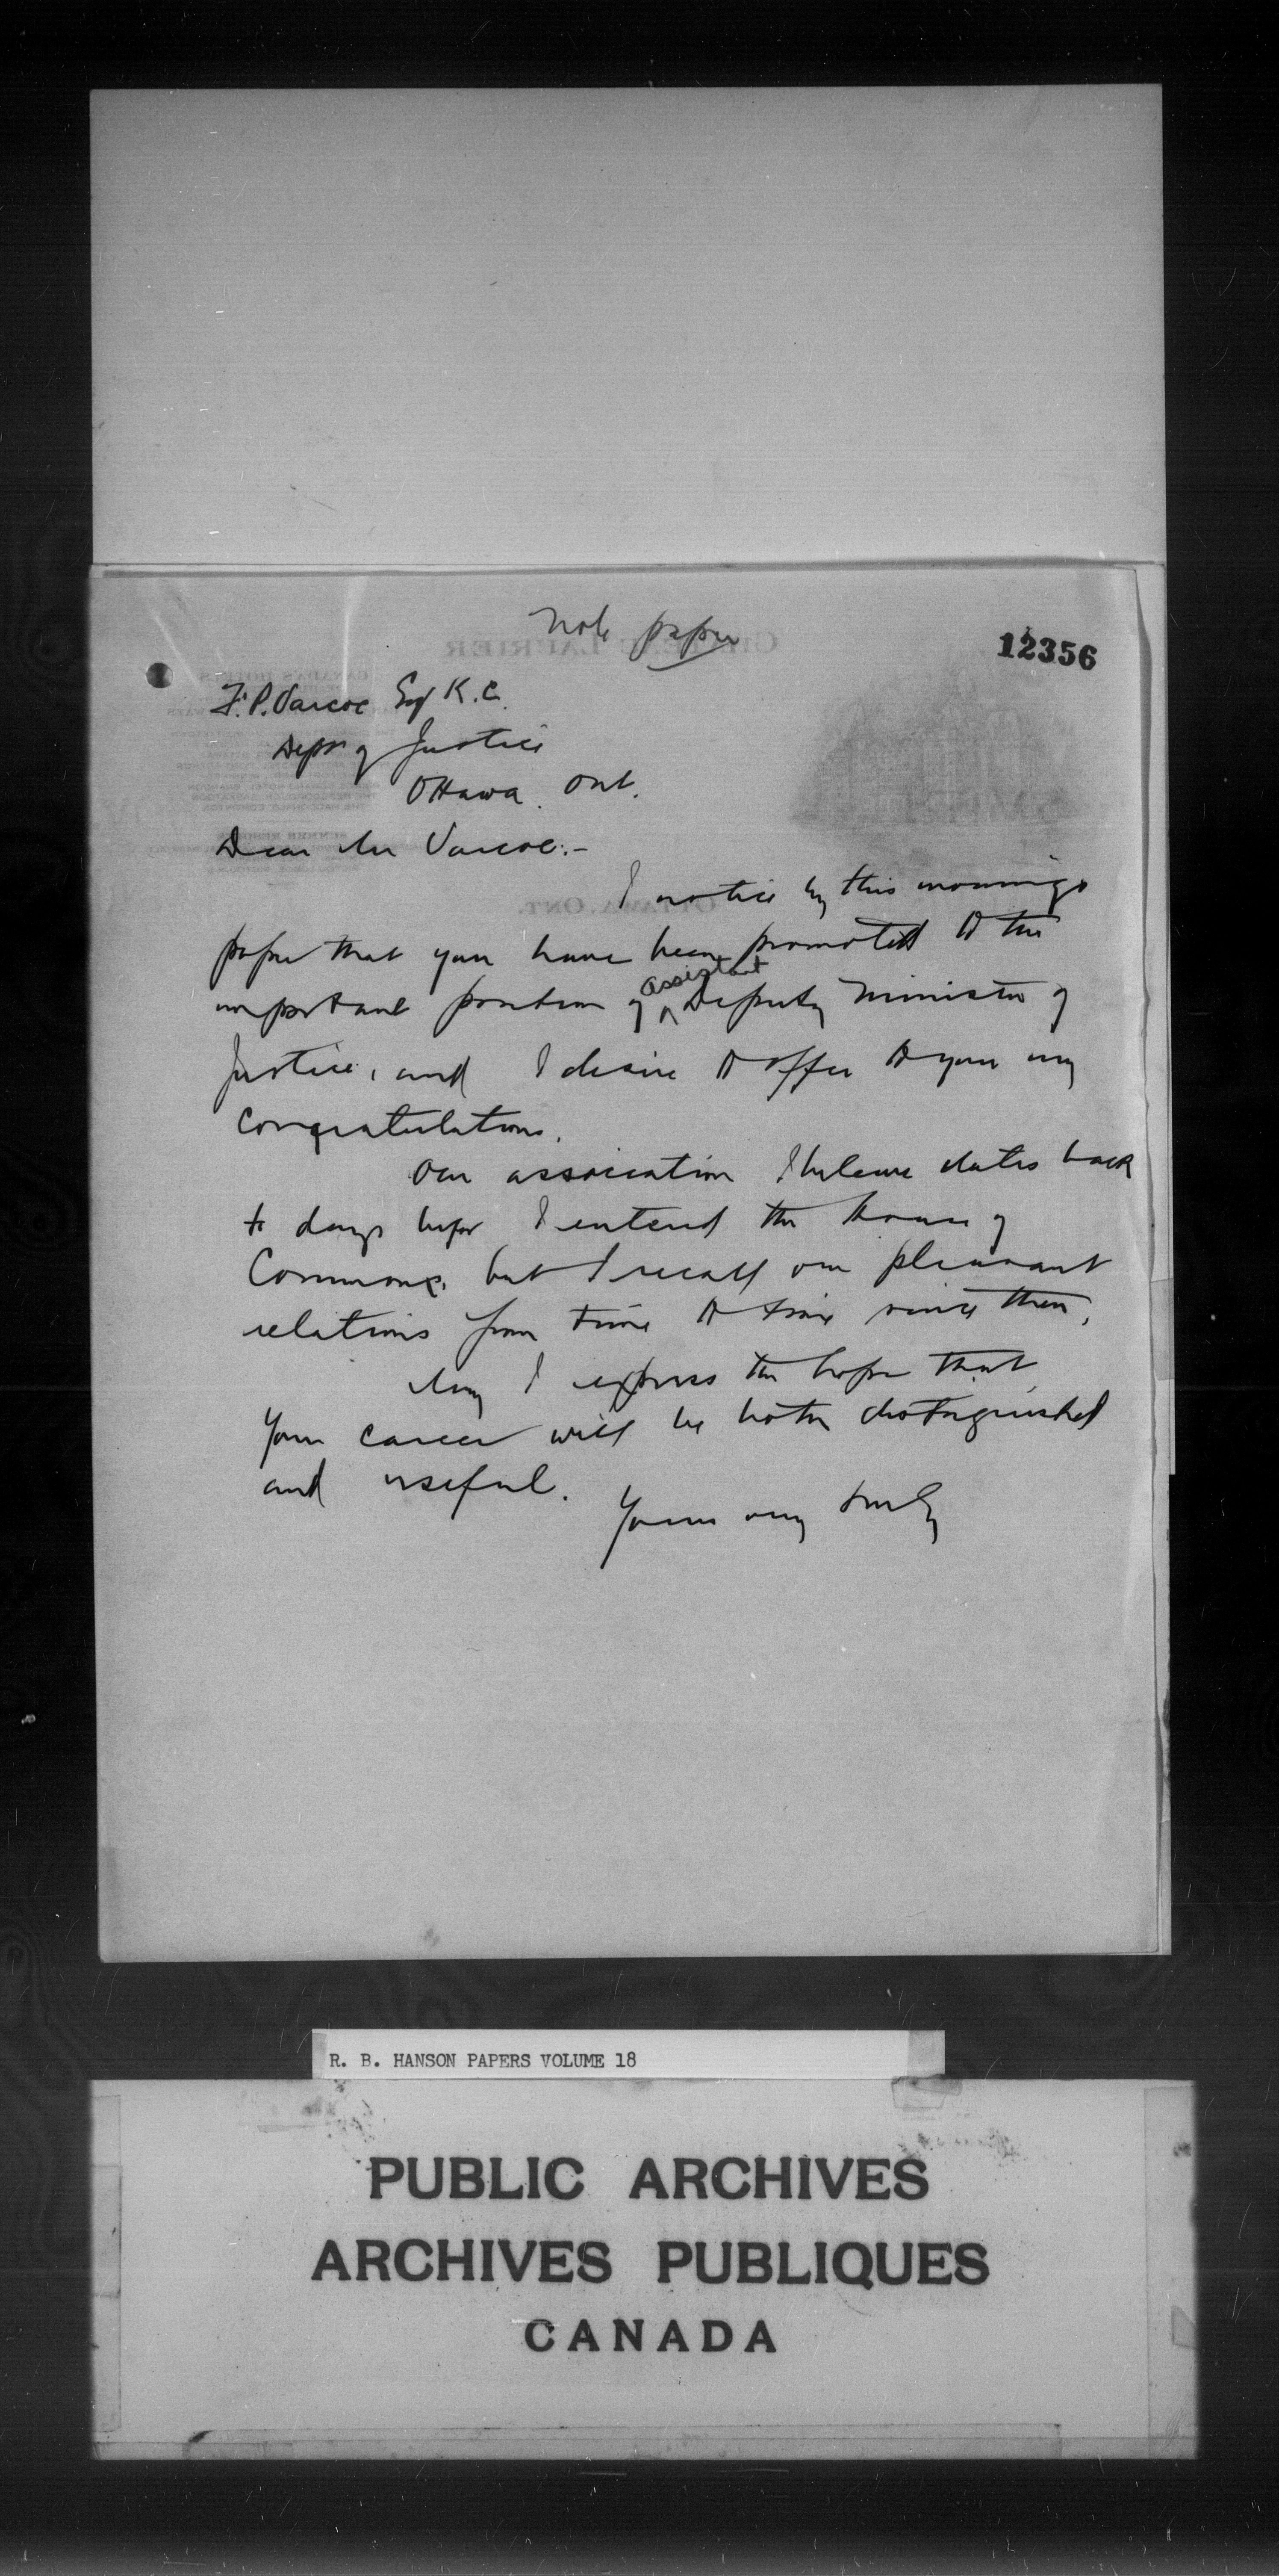 Note paper
12356
F. P. Varcoe Esq K.C.
Dept of Justice
Ottawa. Ont.
Dear Mr Varcoe:-
I notice by this mornings
paper that you have been promoted to the
assistant
important position of ^ Deputy Minister of
Justice, and I desire to offer to you my
congratulations.
Our association I believe dates back
to days before I entered the House of
Commons, but I recall our pleasant
relations from time to time since then,
May I express the hope that
your career will be both distinguished
and useful.
Yours very truly
R. B. HANSON PAPERS VOLUME 18
PUBLIC ARCHIVES
ARCHIVES PUBLIQUES
CANADA